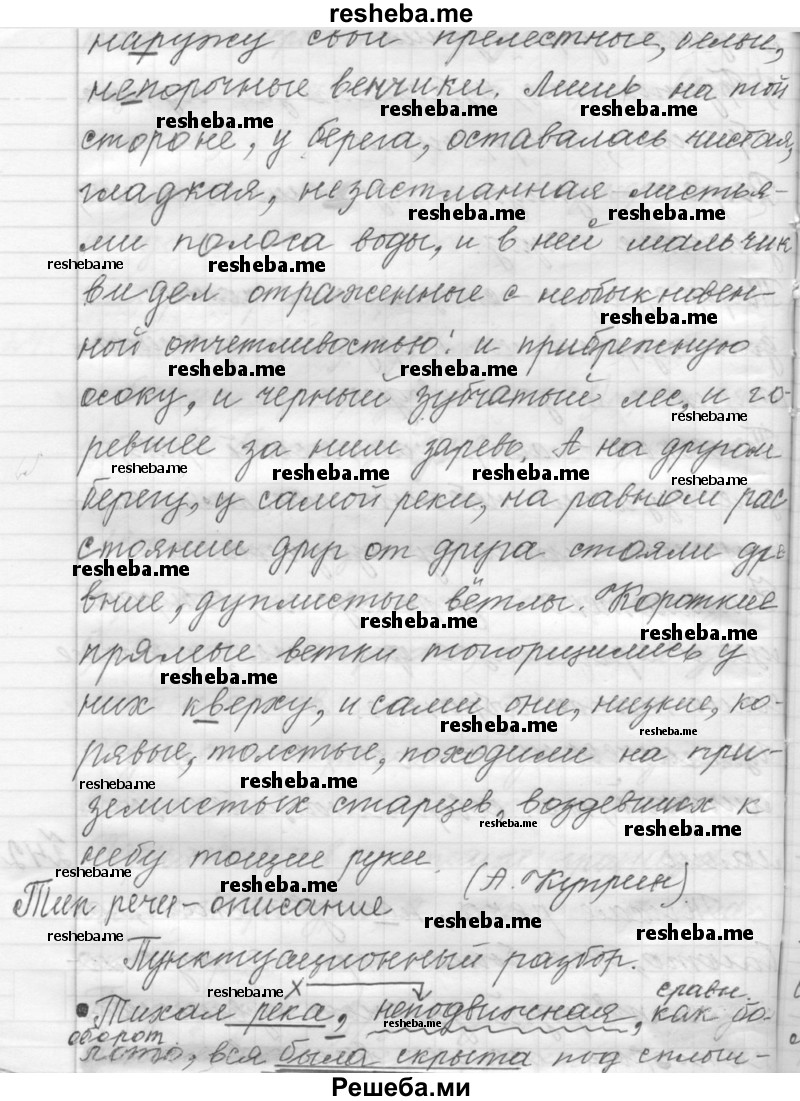 resheba.me
наружу свои прелестные, белые,
непорочные венчики. Лишь на той
resheba.me resheba.me resheba.me
стороне, у берега, оставалась чистая,
гладкая, незастланная листья-
resheba.me resheba.me
ми полоса воды, и в ней мальчик
resheba.me resheba.me
видел отраженные с необыкновен-
resheba.me
ной отчетливостью: и прибрежную
resheba.me resheba.me
осоку, и черный зубчатый лес, и го-
resheba.me
ревшее за ним зарево. А на другом
resheba.me resheba.me resheba.me
берегу, у самой реки, на равном рас
стоянии друг от друга стояли дре
resheba.me
вние, дуплистые вётлы. Короткие
resheba.me resheba.me
прямые ветки топорщились у
resheba.me
них кверху, и сами они, низкие, ко-
resheba.me resheba.me
рявые, толстые, походили на при-
resheba.me resheba.me
земистых старцев, воздевших к
resheba.me resheba.me
небу тощие руки.
resheba.me resheba.me
(А. Куприн)
Тип речи-описание
resheba.me resheba.me resheba.me
Пунктуационный разбор.
resheba.me х сравн.
Тихая река, неподвижная, как бо-
resheba.me
оборот
лото, вся была скрыта под сплош-
Решеба.ми